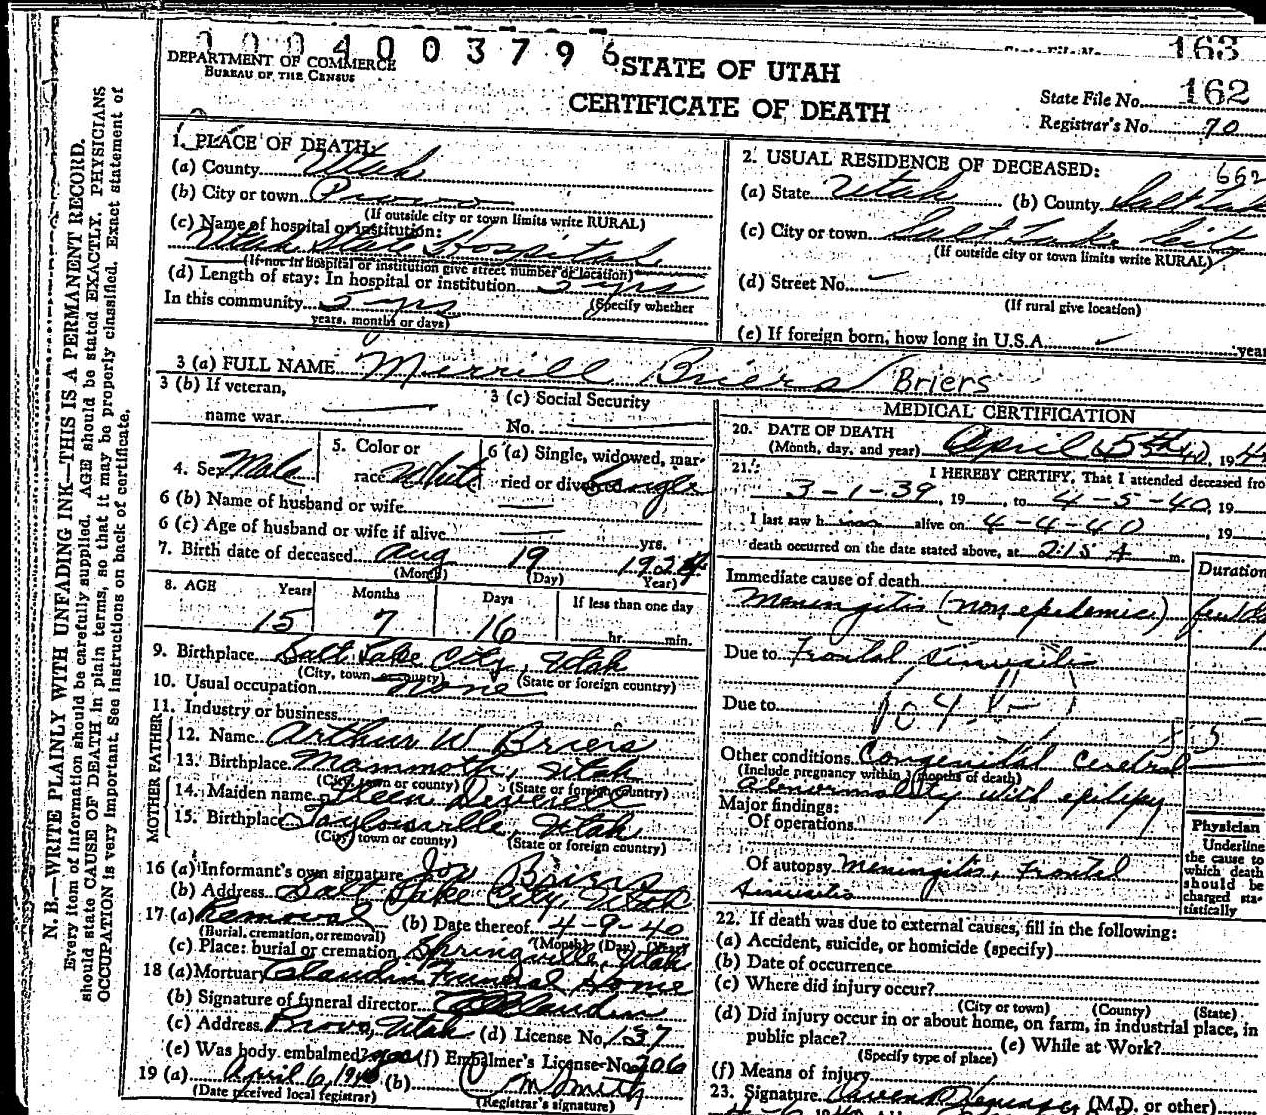 1004003796
State File No. 163
DEPARTMENT OF COMMERCE
BUREAU OF THE CENSUS
STATE OF UTAH
CERTIFICATE OF DEATH
State File No. 162
Registrar's No. 70
1. PLACE OF DEATH:
(a) County Utah
(b) City or town Provo
(If outside city or town limits write RURAL)
(c) Name of hospital or institution:
Utah State Hospital
(If not in hospital or institution give street number or location)
(d) Length of stay: In hospital or institution 5 yrs
(Specify whether
In this community 5 yrs
years, months or days)
2. USUAL RESIDENCE OF DECEASED:
662
(a) State Utah (b) County Salt Lak
(c) City or town Salt Lake City
(If outside city or town limits write RURAL)
(d) Street No.
(If rural give location)
(e) If foreign born, how long in U.S.A. year
3 (a) FULL NAME Merrill Briers / Briers
3 (b) If veteran,
name war
3 (c) Social Security
No.
4. Sex Male
5. Color or
race White
6 (a) Single, widowed, mar-
ried or divorced Single
6 (b) Name of husband or wife
6 (c) Age of husband or wife if alive yrs.
7. Birth date of deceased Aug 19 1924
(Month) (Day) Year)
8. AGE Years Months Days If less than one day
15 7 16 hr. min.
9. Birthplace Salt Lake City, Utah
(City, town or county) (State or foreign country)
10. Usual occupation none
11. Industry or business
FATHER
12. Name Arthur W Briers
13. Birthplace Mammoth, Utah
(City town or county) (State or foreign country)
MOTHER
14. Maiden name Deverell
15. Birthplace Taylorsville, Utah
(City town or county) (State or foreign country)
16 (a) Informant's own signature Briers
(b) Address Salt Lake City, Utah
17 (a) Removal (b) Date thereof 4-9-40
(Burial, cremation, or removal) (Month) (Day) (Year)
(c) Place: burial or cremation Springville, Utah
18 (a) Mortuary Claudin Funeral Home
(b) Signature of funeral director Claudin
(c) Address Provo, Utah (d) License No. 137
(e) Was body embalmed? yes (f) Embalmer's License No. 206
19 (a) April 6, 1940 (b) Smith
(Date received local registrar) (Registrar's signature)
MEDICAL CERTIFICATION
20. DATE OF DEATH
(Month, day, and year) April 5th 40, 19
21. I HEREBY CERTIFY, That I attended deceased fro
3-1-39, 19 to 4-5-40, 19
I last saw h im alive on 4-4-40, 19
death occurred on the date stated above, at 2:15 A m.
Duration
Immediate cause of death
Meningitis (non epidemic) few
Due to Frontal sinusitis
Due to
Other conditions Congenital cerebral
(Include pregnancy within 3 months of death)
abnormality with epilipsy
Major findings:
Of operations
Of autopsy Meningitis, Frontal
sinusitis
Physician
Underline
the cause to
which death
should be
charged sta-
tistically
22. If death was due to external causes, fill in the following:
(a) Accident, suicide, or homicide (specify)
(b) Date of occurrence
(c) Where did injury occur?
(City or town) (County) (State)
(d) Did injury occur in or about home, on farm, in industrial place, in
public place? (e) While at Work?
(Specify type of place)
(f) Means of injury
23. Signature (M.D. or other)
N. B.—WRITE PLAINLY WITH UNFADING INK—THIS IS A PERMANENT RECORD.
Every item of information should be carefully supplied. AGE should be stated EXACTLY. PHYSICIANS
should state CAUSE OF DEATH in plain terms, so that it may be properly classified. Exact statement of
OCCUPATION is very important. See instructions on back of certificate.